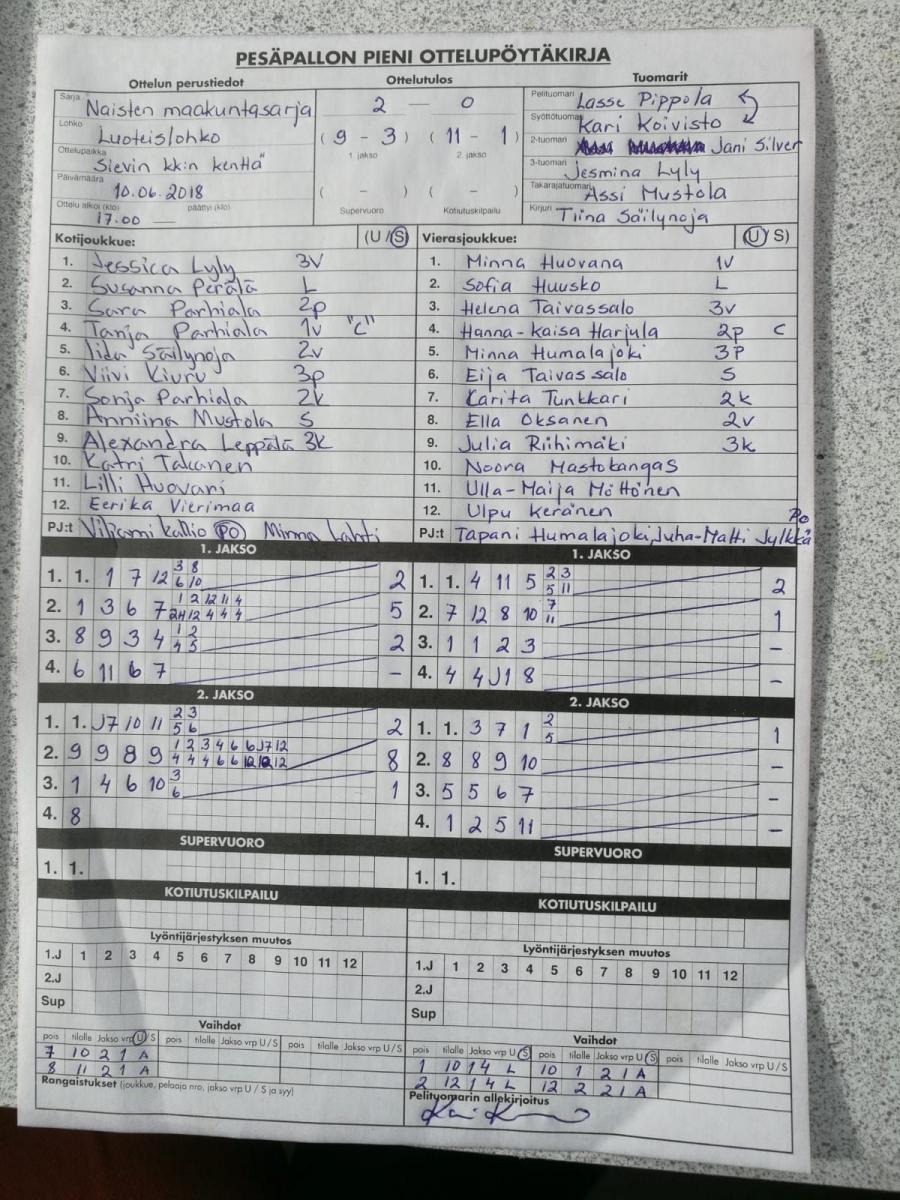 PESÄPALLON PIENI OTTELUPÖYTÄKIRJA
Ottelun perustiedot
Sarja Naisten maakuntasarja
Lohko Luoteislohko
Ottelupaikka Sievin kk:n kenttä
Päivämäärä 10.06.2018
Ottelu alkoi (klo) 17.00 — päättyi (klo)
Ottelutulos
2 — 0
( 9 - 3 ) ( 11 - 1 )
1. jakso 2. jakso
( - ) ( - )
Supervuoro Kotiutuskilpailu
Tuomarit
Pelituomari Lasse Pippola
Syöttötuomari Kari Koivisto
2-tuomari Jani Silver
3-tuomari Jesmina Lyly
Takarajatuomari Assi Mustola
Kirjuri Tiina Säilynoja
Kotijoukkue: (U / S)
1. Jessica Lyly 3v
2. Susanna Perälä L
3. Sara Parhiala 2p
4. Tanja Parhiala 1v "C"
5. Iida Säilynoja 2v
6. Viivi Kiuru 3p
7. Sonja Parhiala 2k
8. Anniina Mustola S
9. Alexandra Leppälä 3k
10. Katri Takanen
11. Lilli Huovari
12. Eerika Vierimaa
PJ:t Viljami Kallio PO Minna Lahti
Vierasjoukkue: (U / S)
1. Minna Huovana 1v
2. Sofia Huusko L
3. Helena Taivassalo 3v
4. Hanna-kaisa Harjula 2p C
5. Minna Humalajoki 3P
6. Eija Taivassalo S
7. Karita Tunkkari 2k
8. Ella Oksanen 2v
9. Julia Riihimäki 3k
10. Noora Mastokangas
11. Ulla-Maija Möttönen
12. Ulpu Keränen
PJ:t Tapani Humalajoki, Juha-Matti Jylkkä PO
1. JAKSO
1. 1. 1 7 12 3 8 2
6 10
2. 1 3 6 7 1 2 12 11 4 5
12 4 4 4
3. 8 9 3 4 1 2 2
4 5
4. 6 11 6 7 -
1. JAKSO
1. 1. 4 11 5 2 3 2
5 11
2. 7 12 8 10 7 1
11
3. 1 1 2 3 -
4. 4 4 J1 8 -
2. JAKSO
1. 1. J7 10 11 2 3 2
5 6
2. 9 9 8 9 1 2 3 4 6 6 J7 12 8
4 4 4 6 6 12 12 12
3. 1 4 6 10 3 1
6
4. 8
2. JAKSO
1. 1. 3 7 1 2 1
5
2. 8 8 9 10 -
3. 5 5 6 7 -
4. 1 2 5 11 -
SUPERVUORO
1. 1.
SUPERVUORO
1. 1.
KOTIUTUSKILPAILU
KOTIUTUSKILPAILU
Lyöntijärjestyksen muutos
1.J 1 2 3 4 5 6 7 8 9 10 11 12
2.J
Sup
Lyöntijärjestyksen muutos
1.J 1 2 3 4 5 6 7 8 9 10 11 12
2.J
Sup
Vaihdot
pois tilalle Jakso vrp U / S pois tilalle Jakso vrp U / S pois tilalle Jakso vrp U / S
7 10 2 1 A
8 11 2 1 A
Rangaistukset (joukkue, pelaaja nro, jakso vrp U / S ja syy)
Vaihdot
pois tilalle Jakso vrp U / S pois tilalle Jakso vrp U / S pois tilalle Jakso vrp U / S
1 10 1 4 L 10 1 2 1 A
2 12 1 4 L 12 2 2 1 A
Pelituomarin allekirjoitus